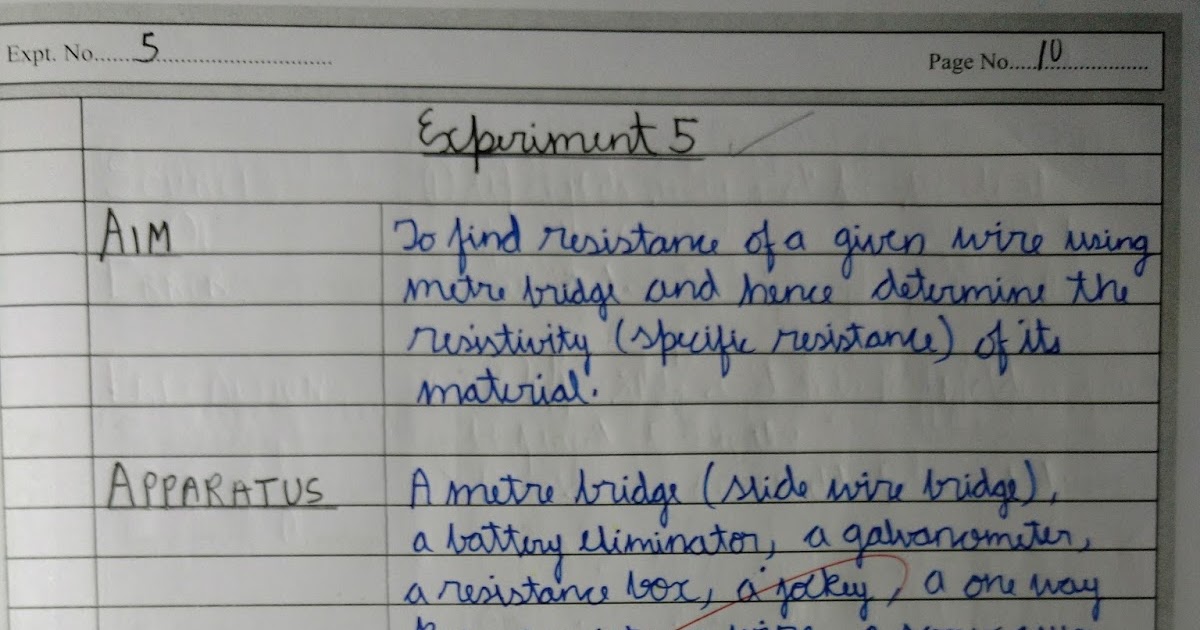 Expt. No. 5
Page No. 10
Experiment 5
AIM
To find resistance of a given wire using
metre bridge and hence determine the
resistivity (specific resistance) of its
material.
APPARATUS
A metre bridge (slide wire bridge),
a battery eliminator, a galvanometer,
a resistance box, a jockey, a one way